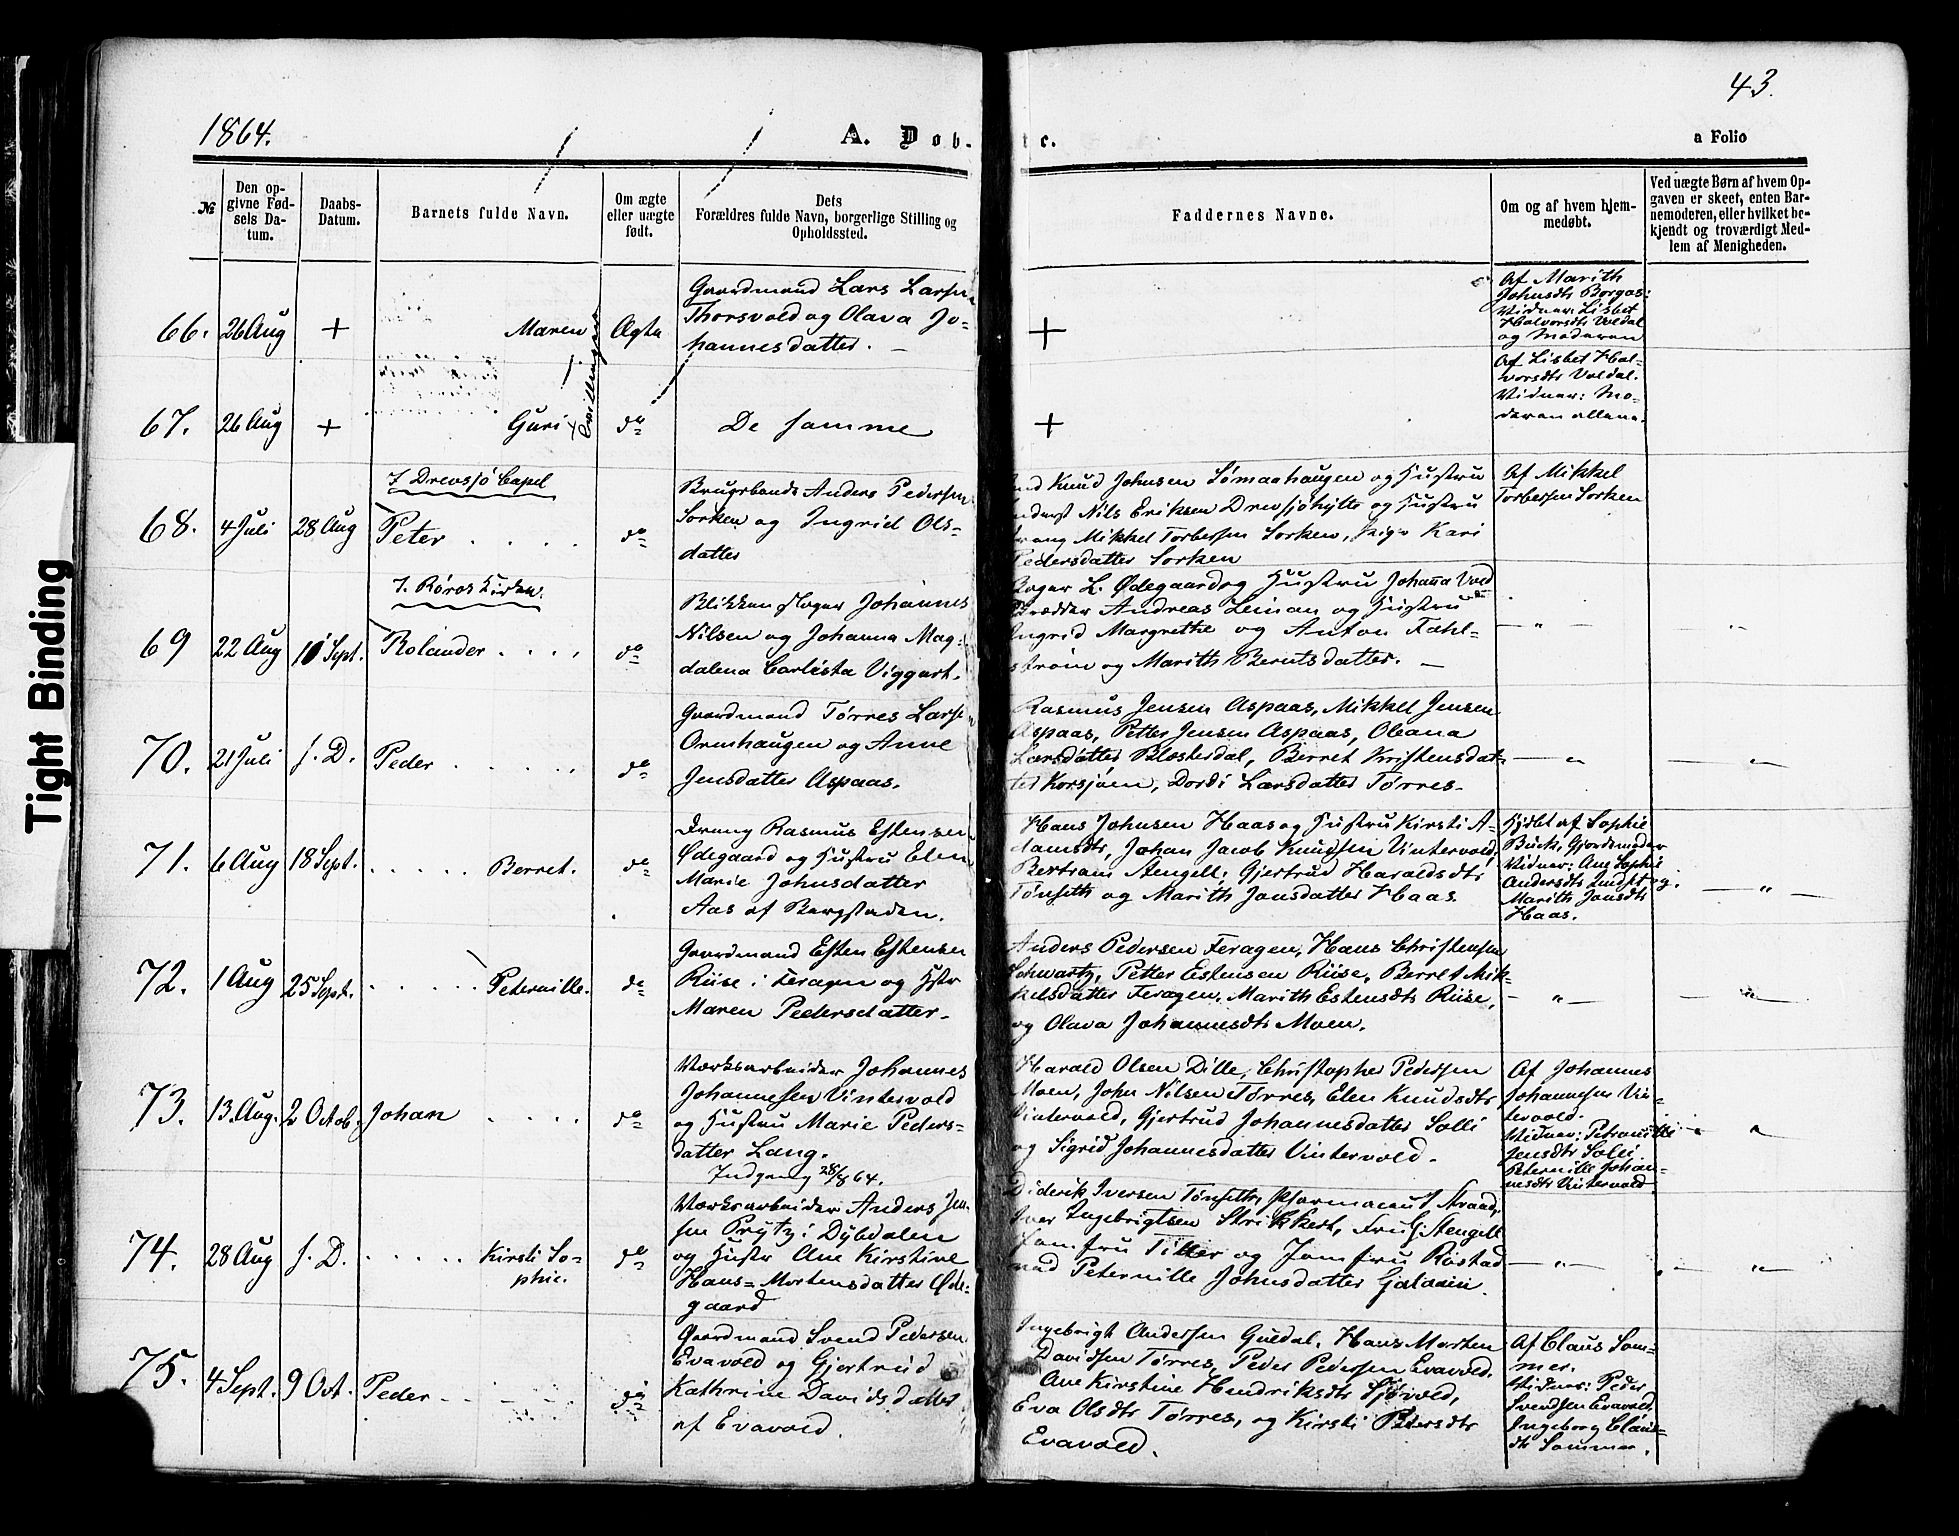 43.
1864.
A. Døb-
te.
a Folio
№
Den op-
givne Fød-
sels Da-
tum.
Daabs-
Datum.
Barnets fulde Navn.
Om ægte
eller uægte
født.
Dets
Forældres fulde Navn, borgerlige Stilling og
Opholdssted.
Faddernes Navne.
Om og af hvem hjem-
medøbt.
Ved uægte Børn af hvem Op-
gaven er skeet, enten Bar-
nemoderen, eller hvilket be-
kjendt og troværdigt Med-
lem af Menigheden.
66. 26 Aug + Maren Ægte
Gaardmand Lars Larsen
Thorsvold og Olava Jo-
hannesdatter. —
+
Af Marith
Johnsdtr Borgos:
Vidner: Lisbet
Halvorsdtr Voldal
og Moderen
Tvillinger
67. 26 Aug + Guri do
De samme
+
Af Lisbet Hal-
vorsdtr Voldal.
Vidner: Mo-
deren allene.
I Drevsjö Capel
68. 4 Juli 28 Aug Peter . . . . do
Brugsbonde Anders Pedersen
Sorken og Ingrid Ols-
datter
Knud Johnsen Sømaahaugen og Hustru
Nils Eriksen Drevsjøhytte og Hustru
Mikkel Torbersen Sorken, Pige Kari
Pedersdatter Sorken
Af Mikkel
Torbersen Sorken
I. Røros Kirke.
69 22 Aug 11 Sept. Rolander . . . . do
Blikkenslager Johannes
Nilsen og Johanna Mag-
dalena Carlista Viggart.
Bager L. Ødegaard og Hustru Johanna Vold
Andreas Leinan og Hustru
Ingrid Margrethe og Anton Fahl-
strøm og Marith Berntsdatter. —
— " — "
70. 21 Juli s. D. Peder . . . . . do
Gaardmand Tørres Larsen
Ormhaugen og Anne
Jensdatter Aspaas.
Rasmus Jensen Aspaas, Mikkel Jensen
Aspaas, Petter Jensen Aspaas, Oleana
Larsdatter Blæsterdal, Berret Kristensdat-
ter Korsjøen, Dordi Larsdatter Tørres.
— " — — " —
71. 6 Aug 18 Sept. . . . . . Berret. do
Dreng Rasmus Estensen
Ødegaard og Hustru Elen
Marie Johnsdatter
Aas af Bergstaden.
Hans Johnsen Haas og Hustru Kirsti A-
damsdtr, Johan Jacob Knudsen Vintervold,
Bertram Stengell, Gjertrud Haraldsdtr
Tønseth og Marith Jonsdatter Haas.
Hjdøbt af Sophie
Buck, Gjordemoder
Vidner: Ane Sophie
Andersdtr og
Marith Jonsdtr
Haas.
— " —
72. 1 Aug 25 Sept. . . . . . Peternille. do
Gaardmand Esten Estensen
Riise i Feragen og Hstr
Maren Pedersdatter.
Anders Pedersen Feragen, Hans Christensen
Schwartz, Petter Estensen Riise, Berret Mik-
kelsdatter Feragen, Marith Estensdtr Riise,
og Olava Johannesdtr Moen.
— " — — " —
73. 13. Aug. 2 Octob. Johan . . . . do
Værksarbeider Johannes
Johannesen Vintervold
og Hustru Marie Peders-
datter Lang.
Indgang 28/8 64.
Harald Olsen Dille, Christopher Pedersen
Moen, John Nilsen Tørres, Elen Knudsdtr
Vintervold, Gjertrud Johannesdatter Solli
og Sigrid Johannesdatter Vintervold.
Af Johannes
Johannesen Vin-
tervold.
Vidner: Petronille
Jensdtr Solli.
Peternille Johan-
nesdtr Vintervold.
"
74. 28 Aug s. D. . . . . . Kirsti So-
phie. do
Værksarbeider Anders Jen-
sen Prytz i Dybdalen
og Hustr Ane Kirstine
Hans-Mortensdatter Øde-
gaard
Diderik Iversen Tønseth, Pharmaceut Straad,
Iver Ingebrigtsen Strikkert, Fru Stengell
Jomfru Tiller og Jomfru Røstad
Peternille Johnsdatter Galaaen.
— " — — " —
75. 4 Sept. 9 Oct. Peder . . . do
Gaardmand Svend Pedersen
Evavold og Gjertrud
Kathrine Davidsdatter
af Evavold.
Ingebrigt Andersen Guldal, Hans Morten
Davidsen Tørres, Peder Pedersen Evavold,
Ane Kirstine Hendriksdtr Sjøvold,
Eva Olsdtr Tørres, og Kirsti Petersdtr
Evavold.
Af Claus Som-
mer.
Vidner: Peder
Svendsen Evavold,
Ingeborg Claus-
dtr Sommer.
Tight Binding